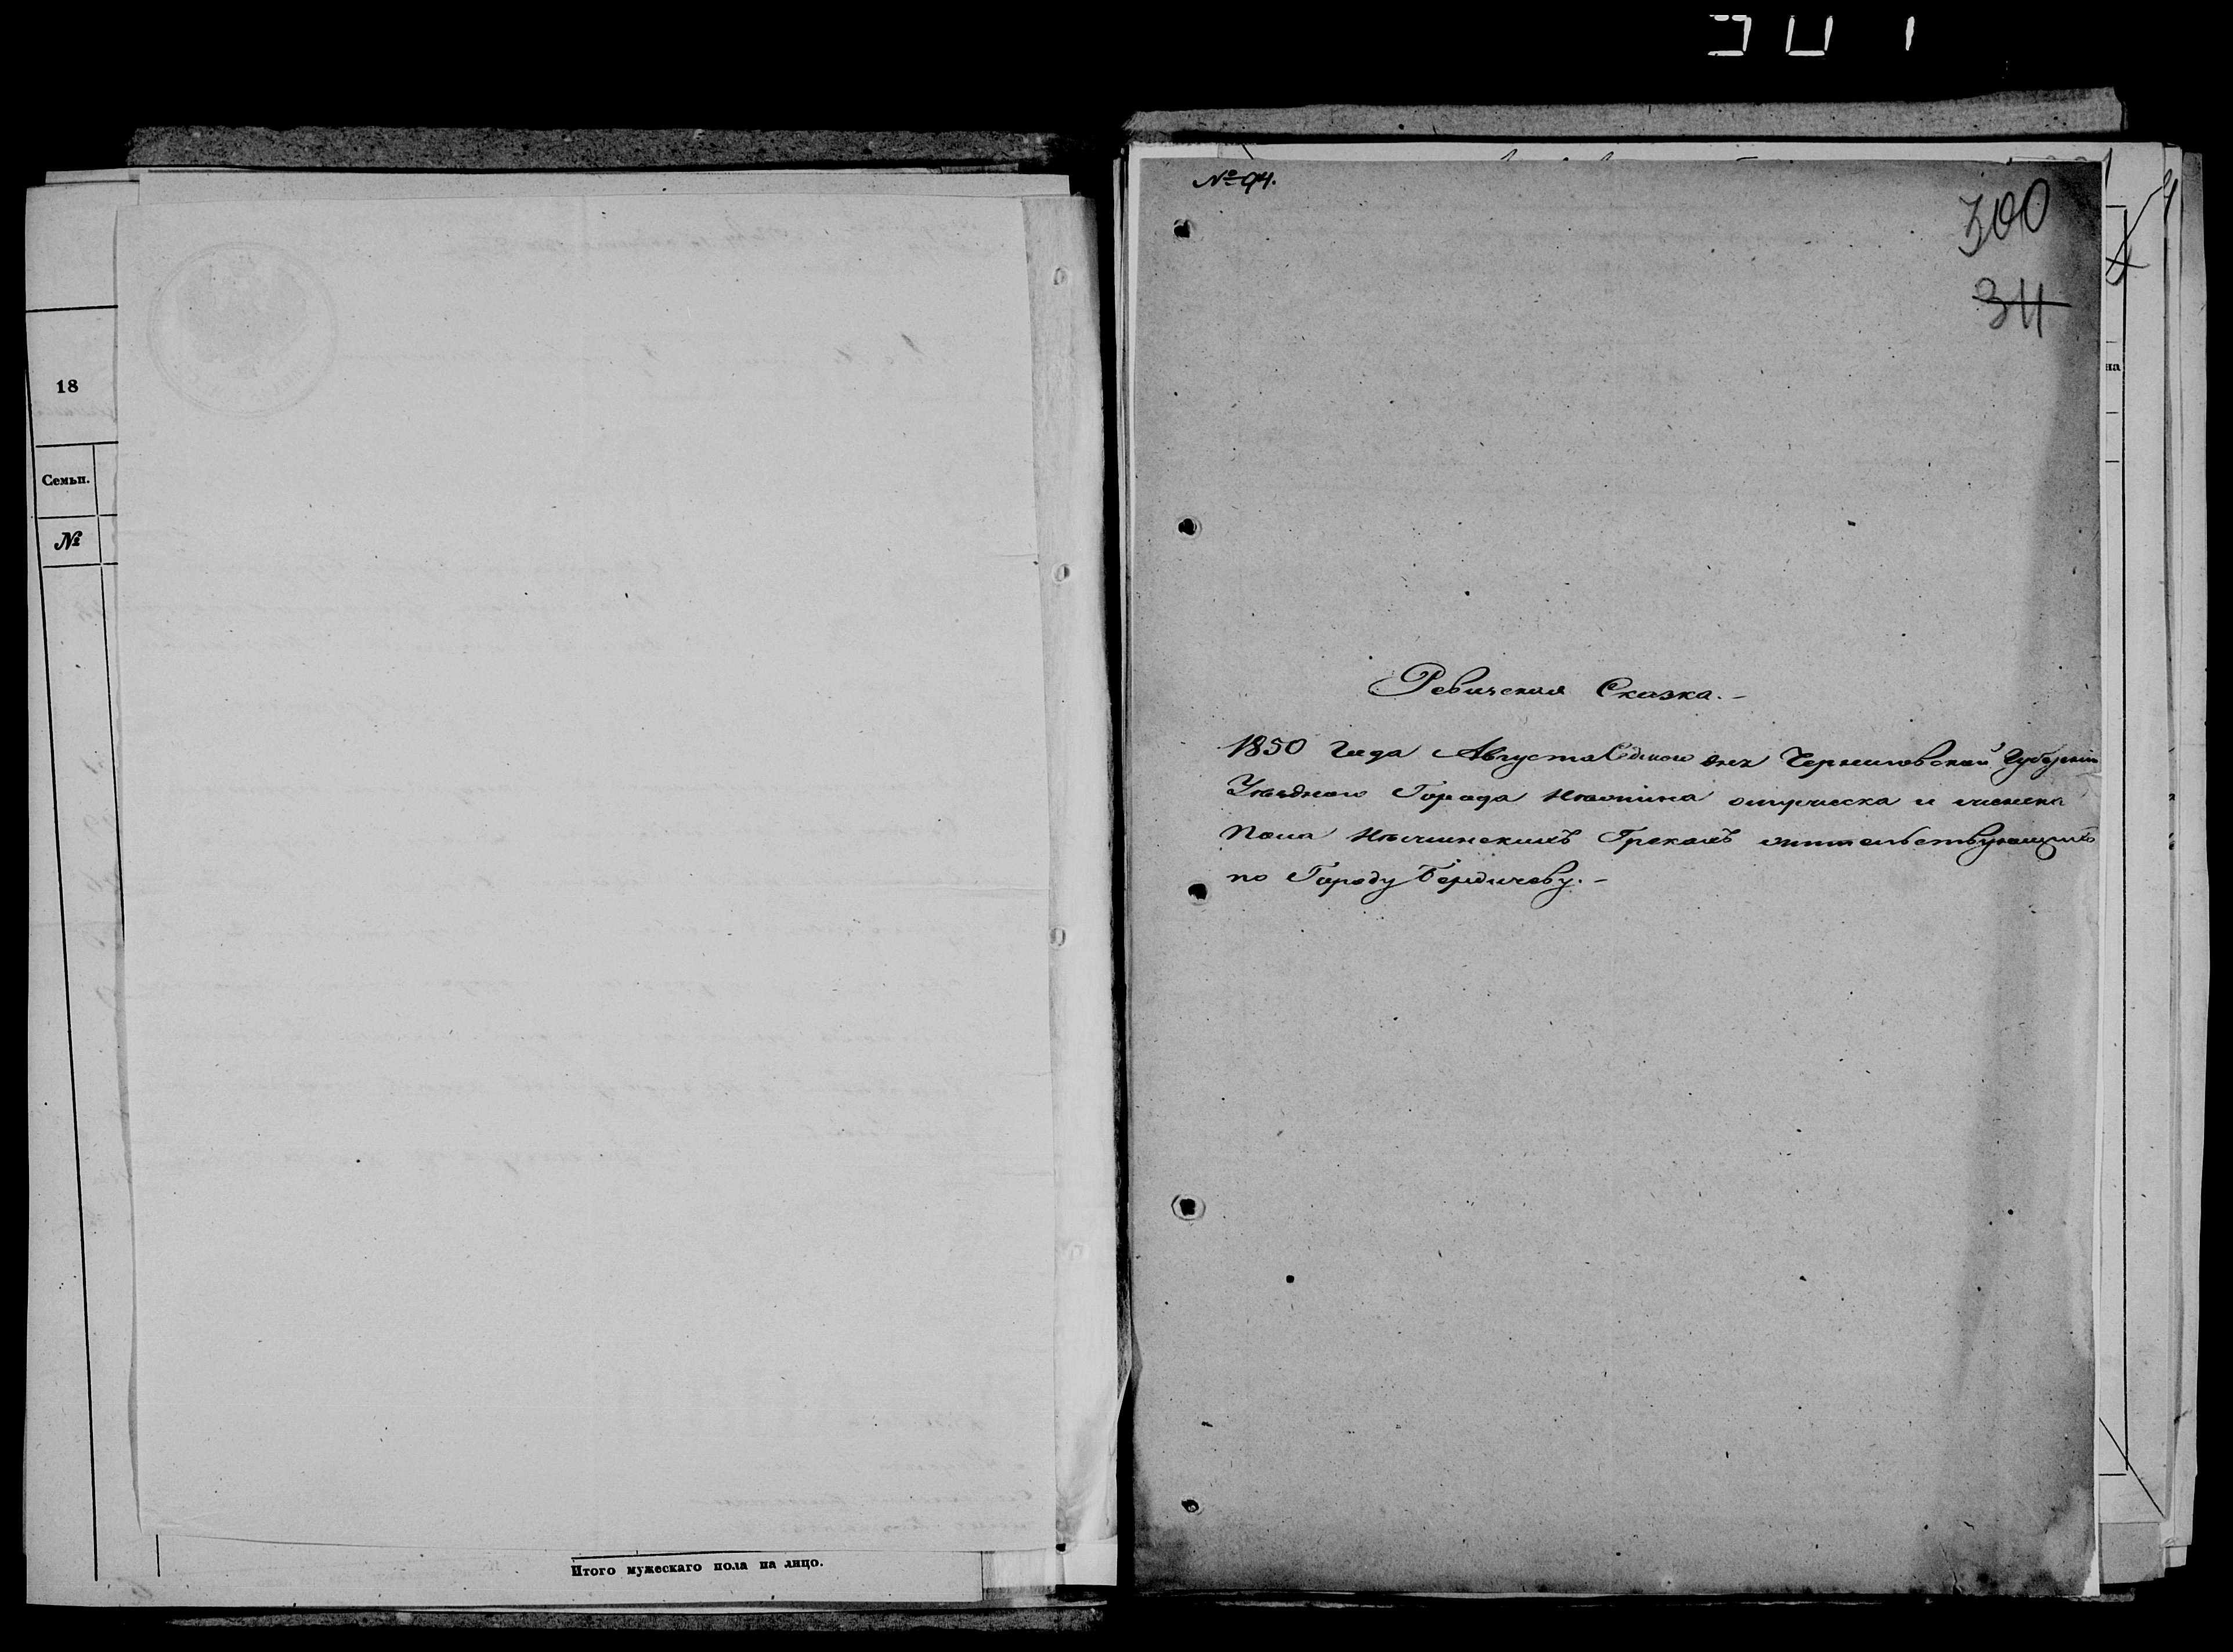 301
18
Семьи.
№
Итого мужескаго пола на лицо.
№ 94.
300
34
Ревизская Сказка. –
1850 года Августа Седмого дня Черниговской Губерніи
Уѣзднаго Города Нѣжина о мужеска и женска
пола Нѣжинскихъ Грекахъ жительствующихъ
по Городу Бердичеву. –
на